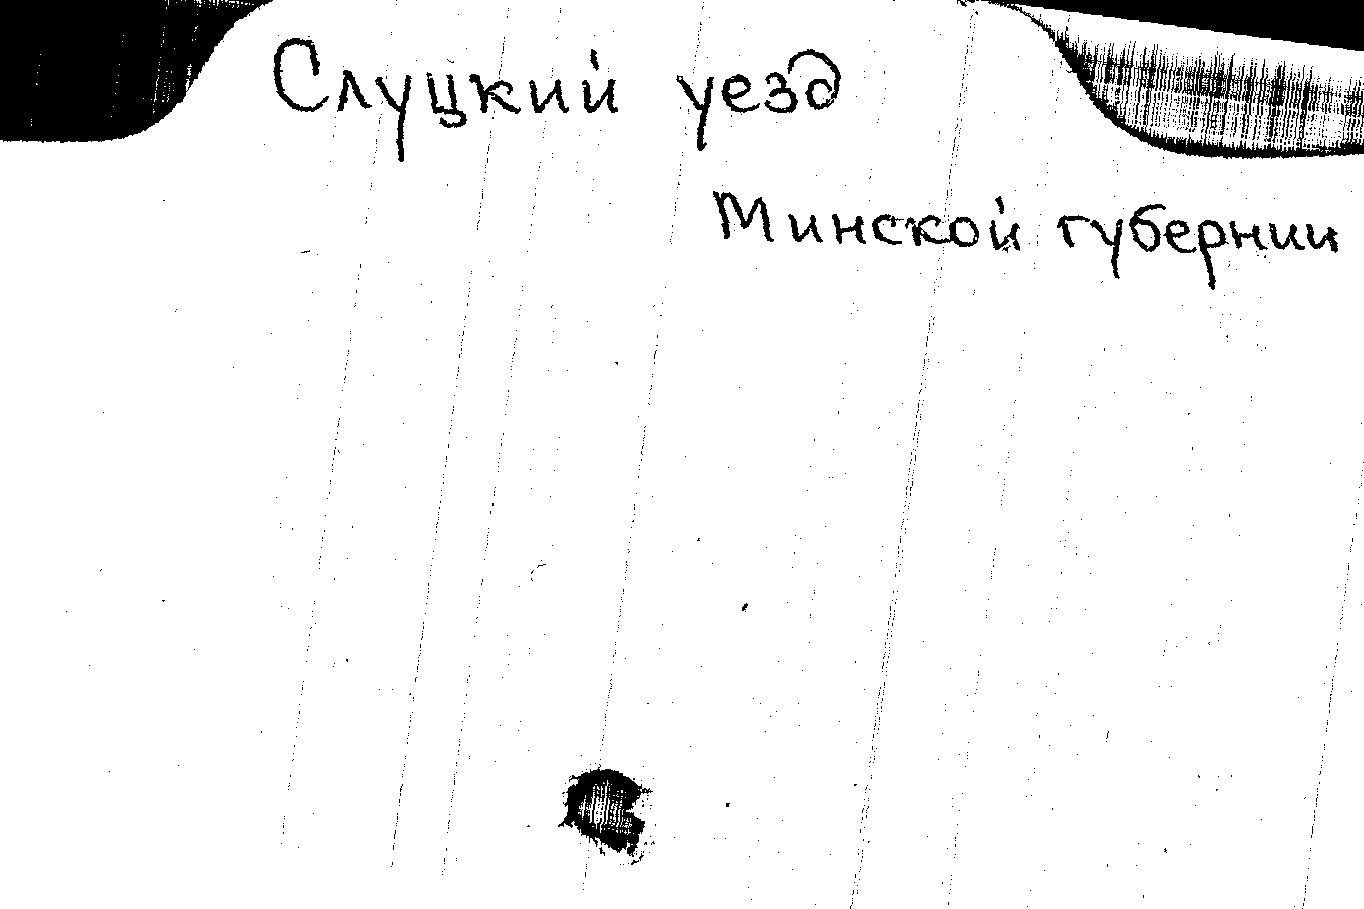 Слуцкий уезд
Минской губернии